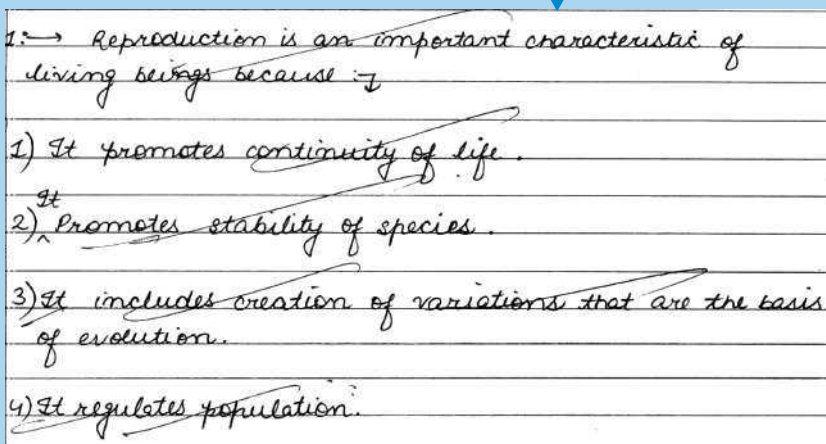 1:→ Reproduction is an important characteristic of
living beings because :-
1) It promotes continuity of life.
It
2)^ Promotes stability of species.
3) It includes creation of variations that are the basis
of evolution.
4) It regulates population.